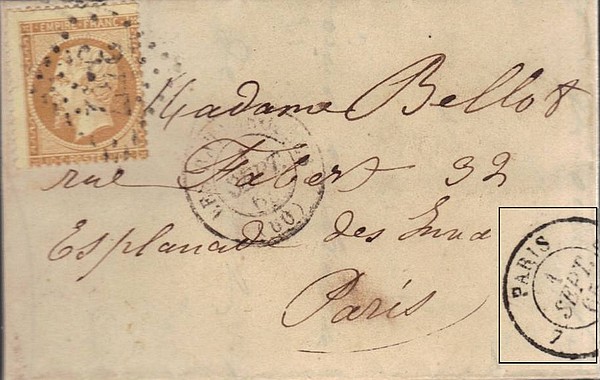 EMPIRE FRANC
Madame Bellot
rue Fabert 32
Esplanade des Inva
Paris
SEPT
(60)
PARIS
1
SEPT
7